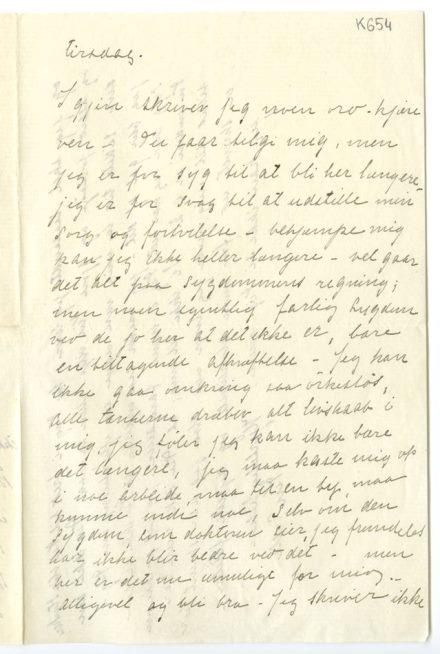 K654
Tirsdag.
Igjen skriver jeg noen ord - kjære
ven - Du faar tilgi mig, men
jeg er for syg til at bli her længere,
jeg er for svag til at udstille min
sorg og fortvilelse - bekjæmpe mig
kan jeg ikke heller længere - vel gaar
det alt paa sygdommens regning;
men noen egentlig farlig sygdom
ved de jo her at det ikke er, bare
en tiltagende afkræftelse - Jeg kan
ikke gaa omkring saa ørkesløs,
alle tankerne dræber alt livshaab i
mig, jeg føler jeg kan ikke bære
det længere, jeg maa kaste mig op
i noe arbeide, maa til en by, maa
kunne noe, selv om den
sygdom, som doktoren sier, jeg fremdeles
har ikke blir bedre ved det - men
her er det nu umulige for mig -
alligevel og bli bra - Jeg skriver ikke